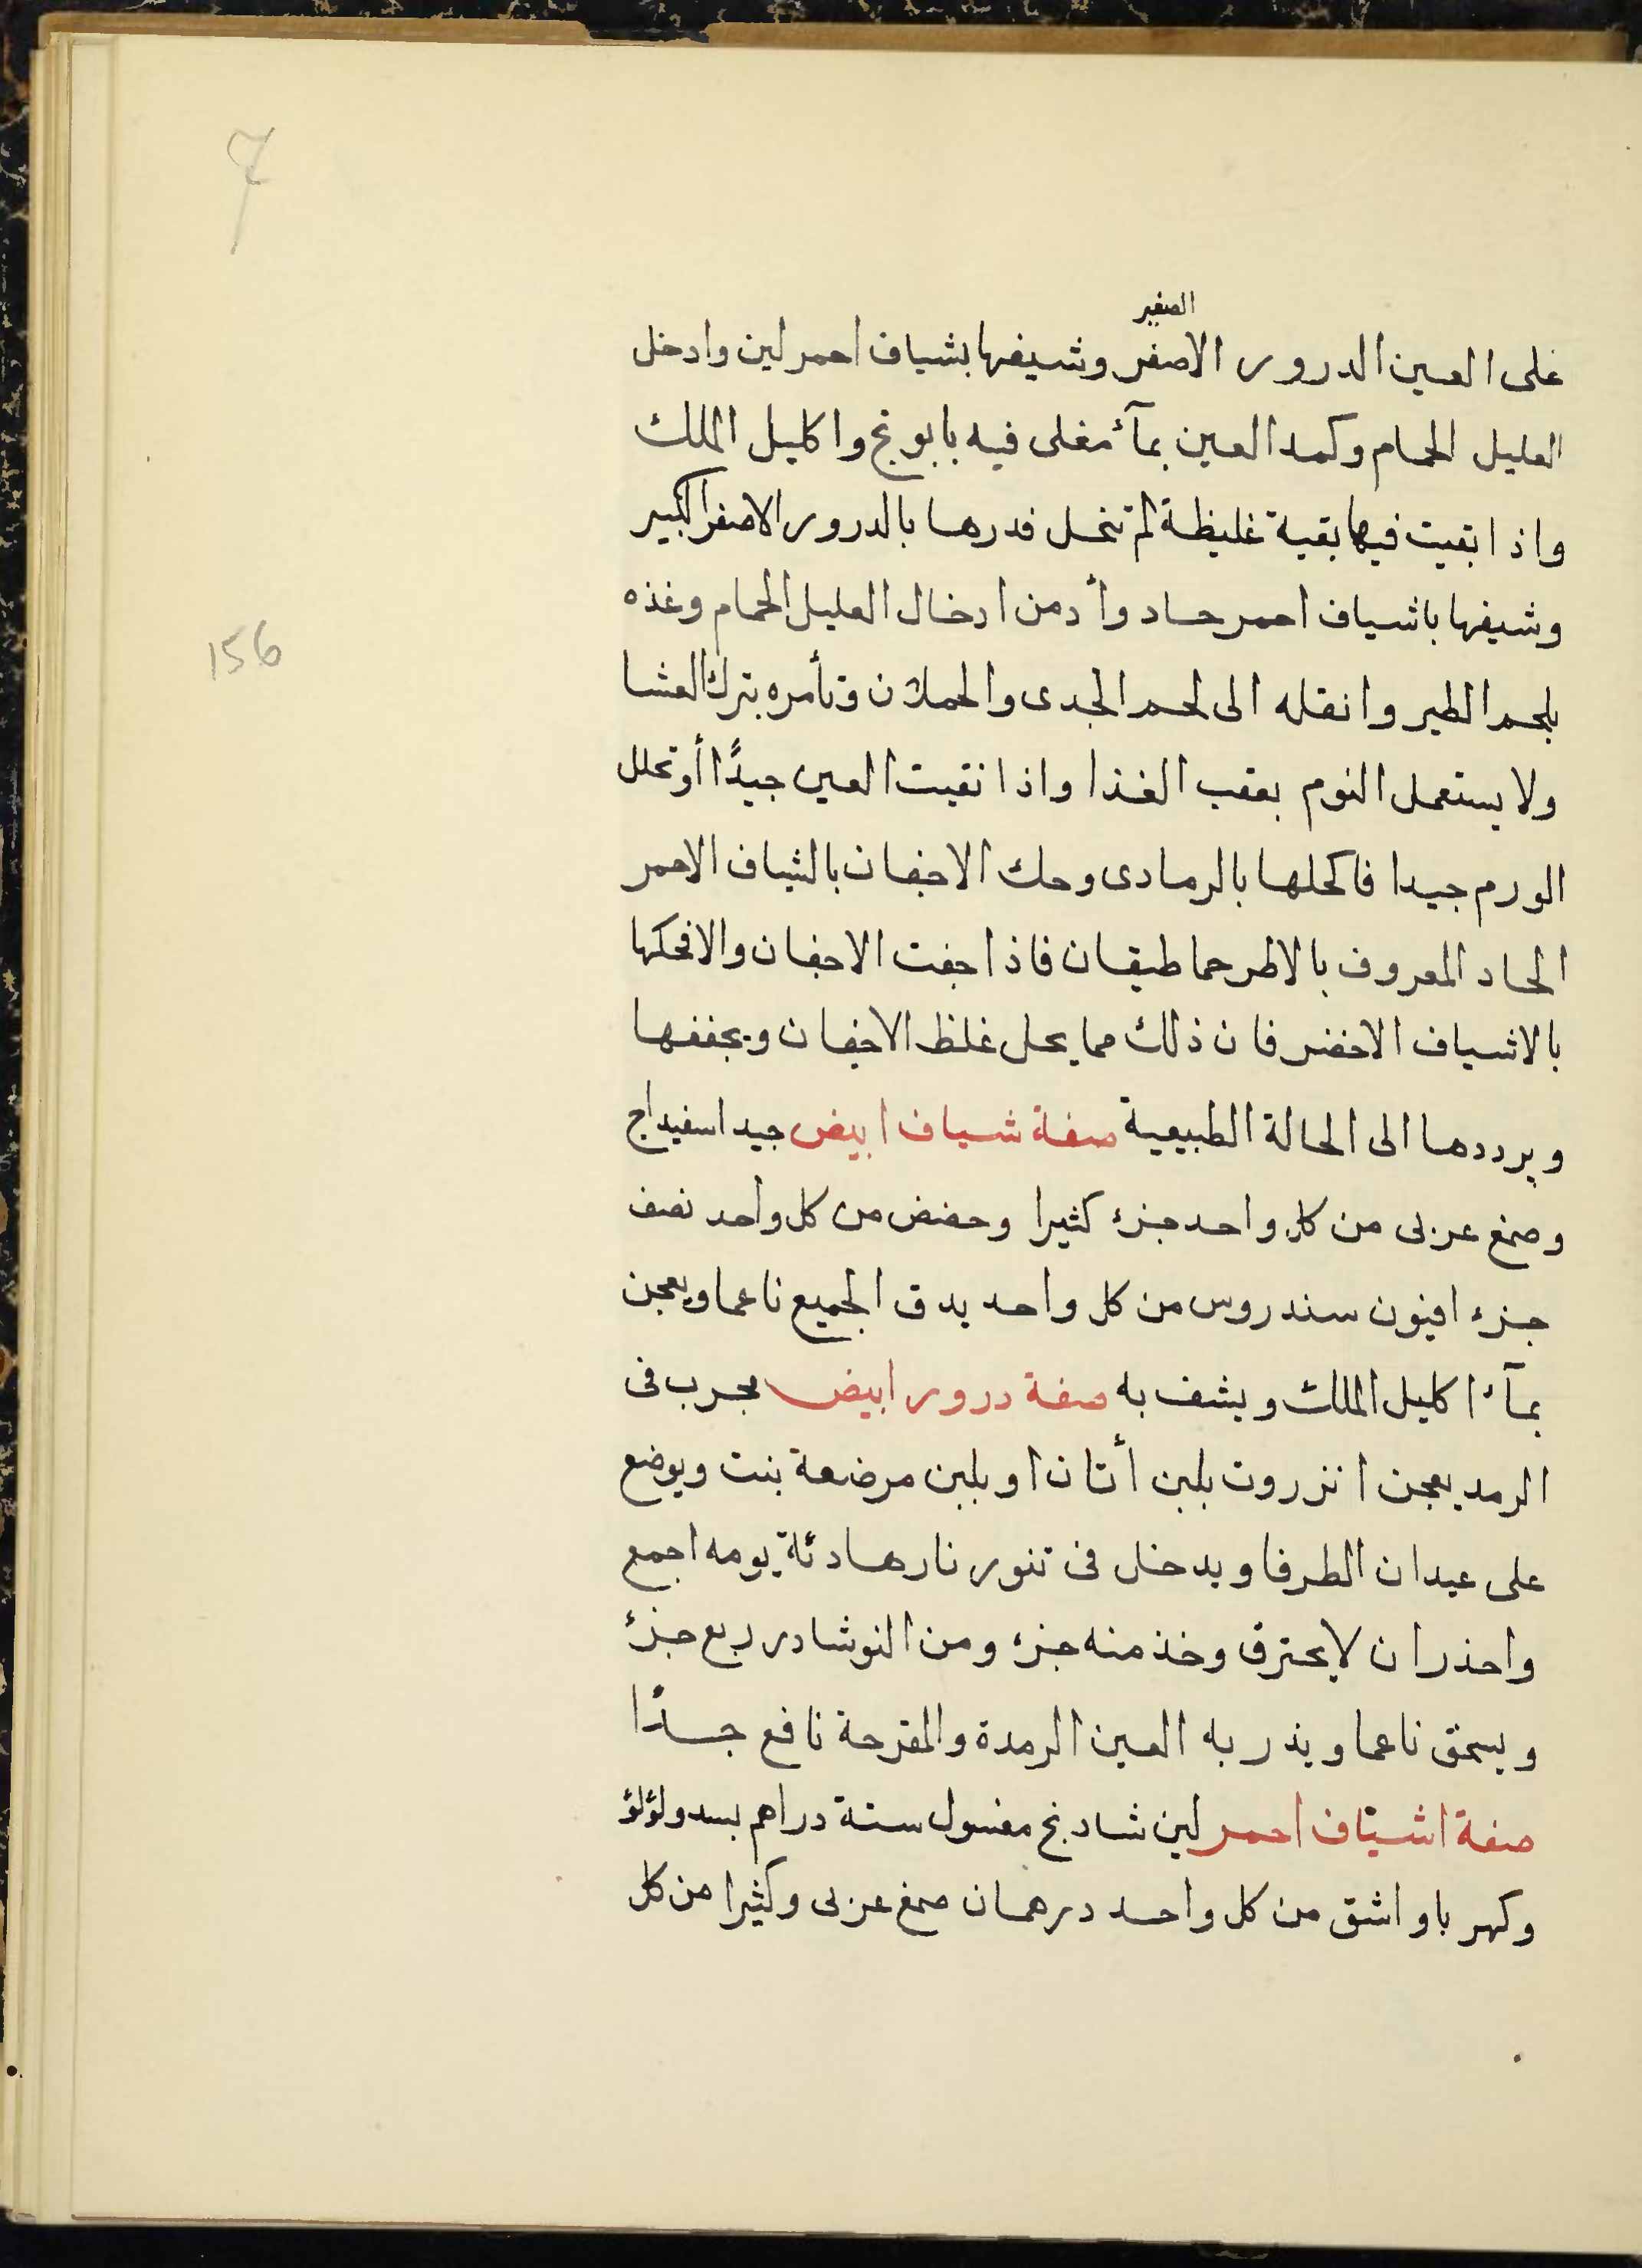 الصغير
على العين الدرور الاصفر وشيفها بشياف احمر لين وادخل
العليل الحمام وكمد العين بمآء مغلى فيه بابونج واكليل الملك
واذا بقيت فيها بقية غليظة لم تنحل فدرها بالدرور الاصفر الكبير
وشيفها باشياف احمر حاد وأدمن ادخال العليل الحمام وغذه
بلحم الطير وانقله الى لحم الجدى والحملان وتأمره بترك العشا
ولا يستعمل النوم بعقب الغذا واذا نقيت العين جيدًا أو تحلل
الورم جيدا فاكحلها بالرمادى وحك الاجفان بالشياف الاحمر
الحاد المعروف بالاطرحماطيقان فاذا جفت الاجفان والا فحكها
بالاشياف الاخضر فان ذلك مما يحل غلظ الاجفان ويجففها
ويرددها الى الحالة الطبيعية صفة شياف ابيض جيد اسفيداج
وصمغ عربى من كل واحد جزء كثيرا وحضض من كل واحد نصف
جزء افيون سندروس من كل واحد يدق الجميع ناعما ويعجن
بمآء اكليل الملك ويشف به صفة درور ابيض مجرب فى
الرمد يعجن انزروت بلبن أتان او بلبن مرضعة بنت ويوضع
على عيدان الطرفا ويدخل فى تنور نار هادئة يومه اجمع
واحذر ان لا يحترق وخذ منه جزء ومن النوشادر ربع جزء
ويسحق ناعما ويذر به العين الرمدة والمقرحة نافع جدًا
صفة اشياف احمر لين شادنج مغسول ستة دراهم بسد ولؤلؤ
وكهربا واشق من كل واحد درهمان صمغ عربى وكثيرا من كل
156